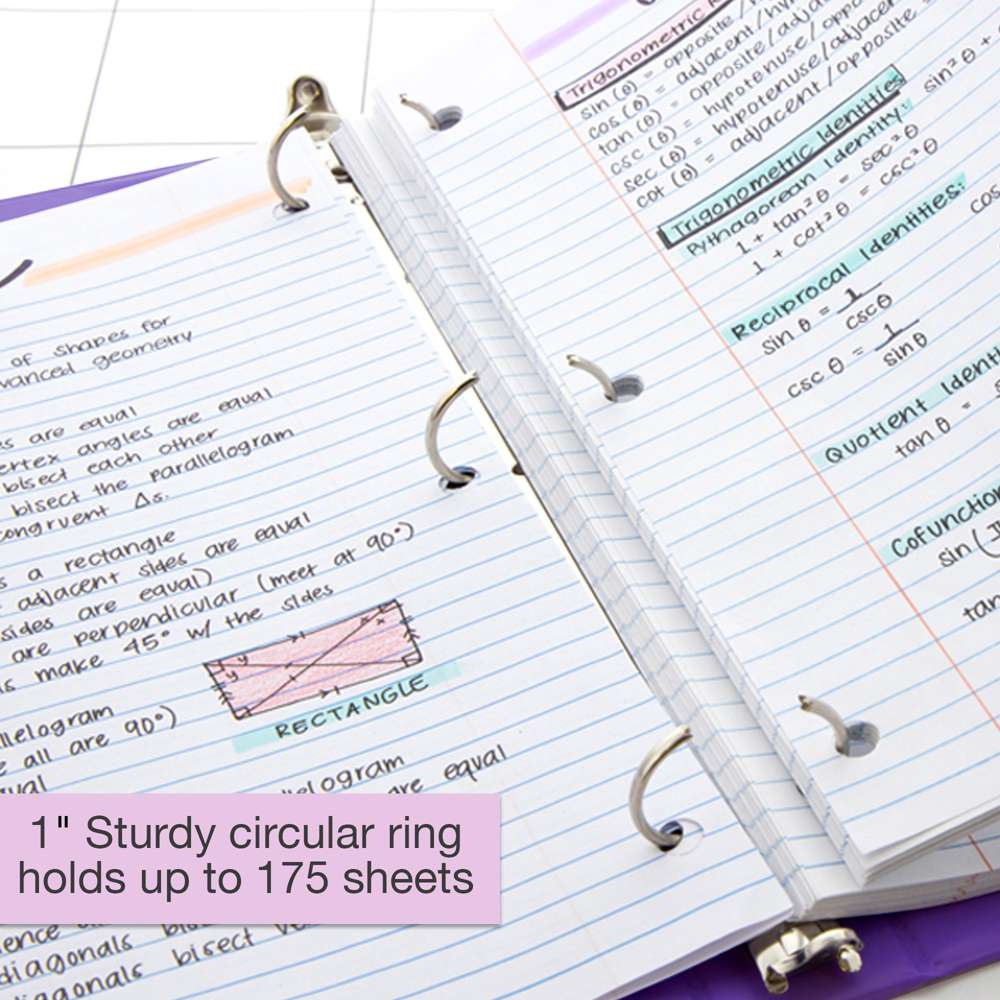 of shapes for
geometry
are equal
angles are equal
bisect each other
bisect the parallelogram
congruent Δs.
s a rectangle
adjacent sides are equal
sides are equal)
are perpendicular (meet at 90°)
make 45° w/ the sides
y y x x
RECTANGLE
all are 90°)
are equal
1" Sturdy circular ring
holds up to 175 sheets
diagonals
diagonals bisect
Trigonometric
sin (θ) = opposite /
cos (θ) = adjacent/
tan (θ) = opposite/
csc (θ) = hypotenuse/
sec (θ) = hypotenuse/adjacent
cot (θ) = adjacent /opposite
Trigonometric Identities
Pythagorean Identity: sin²θ +
1 + tan²θ = sec²θ
1 + cot²θ = csc²θ
Reciprocal Identities:
sin θ = 1
cscθ
csc θ = 1
sinθ
Quotient
tan θ =
Cofunction
sin (
tan